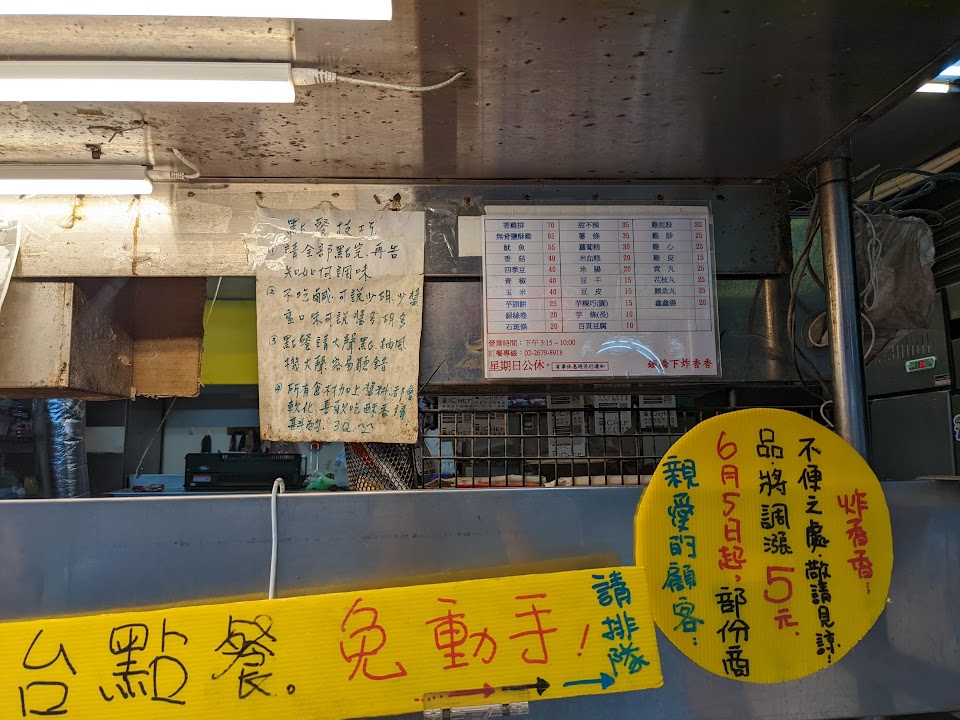 點餐技巧
請全部點完再告
知如何調味
② 不吃鹹可說少胡.少醬
重口味可說醬多.胡多
③ 點餐請大聲點.抽風
機大聲容易聽錯
④ 所有食材加上醬料.都會
軟化.喜歡吃酥脆請
斟酌. 3Q
香雞排 70 甜不辣 35 雞屁股 30
無骨鹽酥雞 65 薯條 35 雞胗 25
魷魚 55 蘿蔔糕 30 雞心 25
香菇 40 米血糕 20 雞皮 15
四季豆 40 米腸 20 貢丸 25
青椒 40 豆干 15 花枝丸 25
玉米 40 豆皮 15 鱈魚丸 25
芋頭餅 25 芋粿巧(圓) 15 鑫鑫腸 20
銀絲卷 20 芋條(長) 10
石斑條 20 百頁豆腐 10
營業時間:下午3:15～10:00
訂餐專線:02-2679-8918
星期日公休。 有事休息時另行通知
下炸香香
親愛的顧客:
6月5日起,部份商
品將調漲5元.
不便之處.敬請見諒!
炸香香:
台點餐。免動手!
請排隊